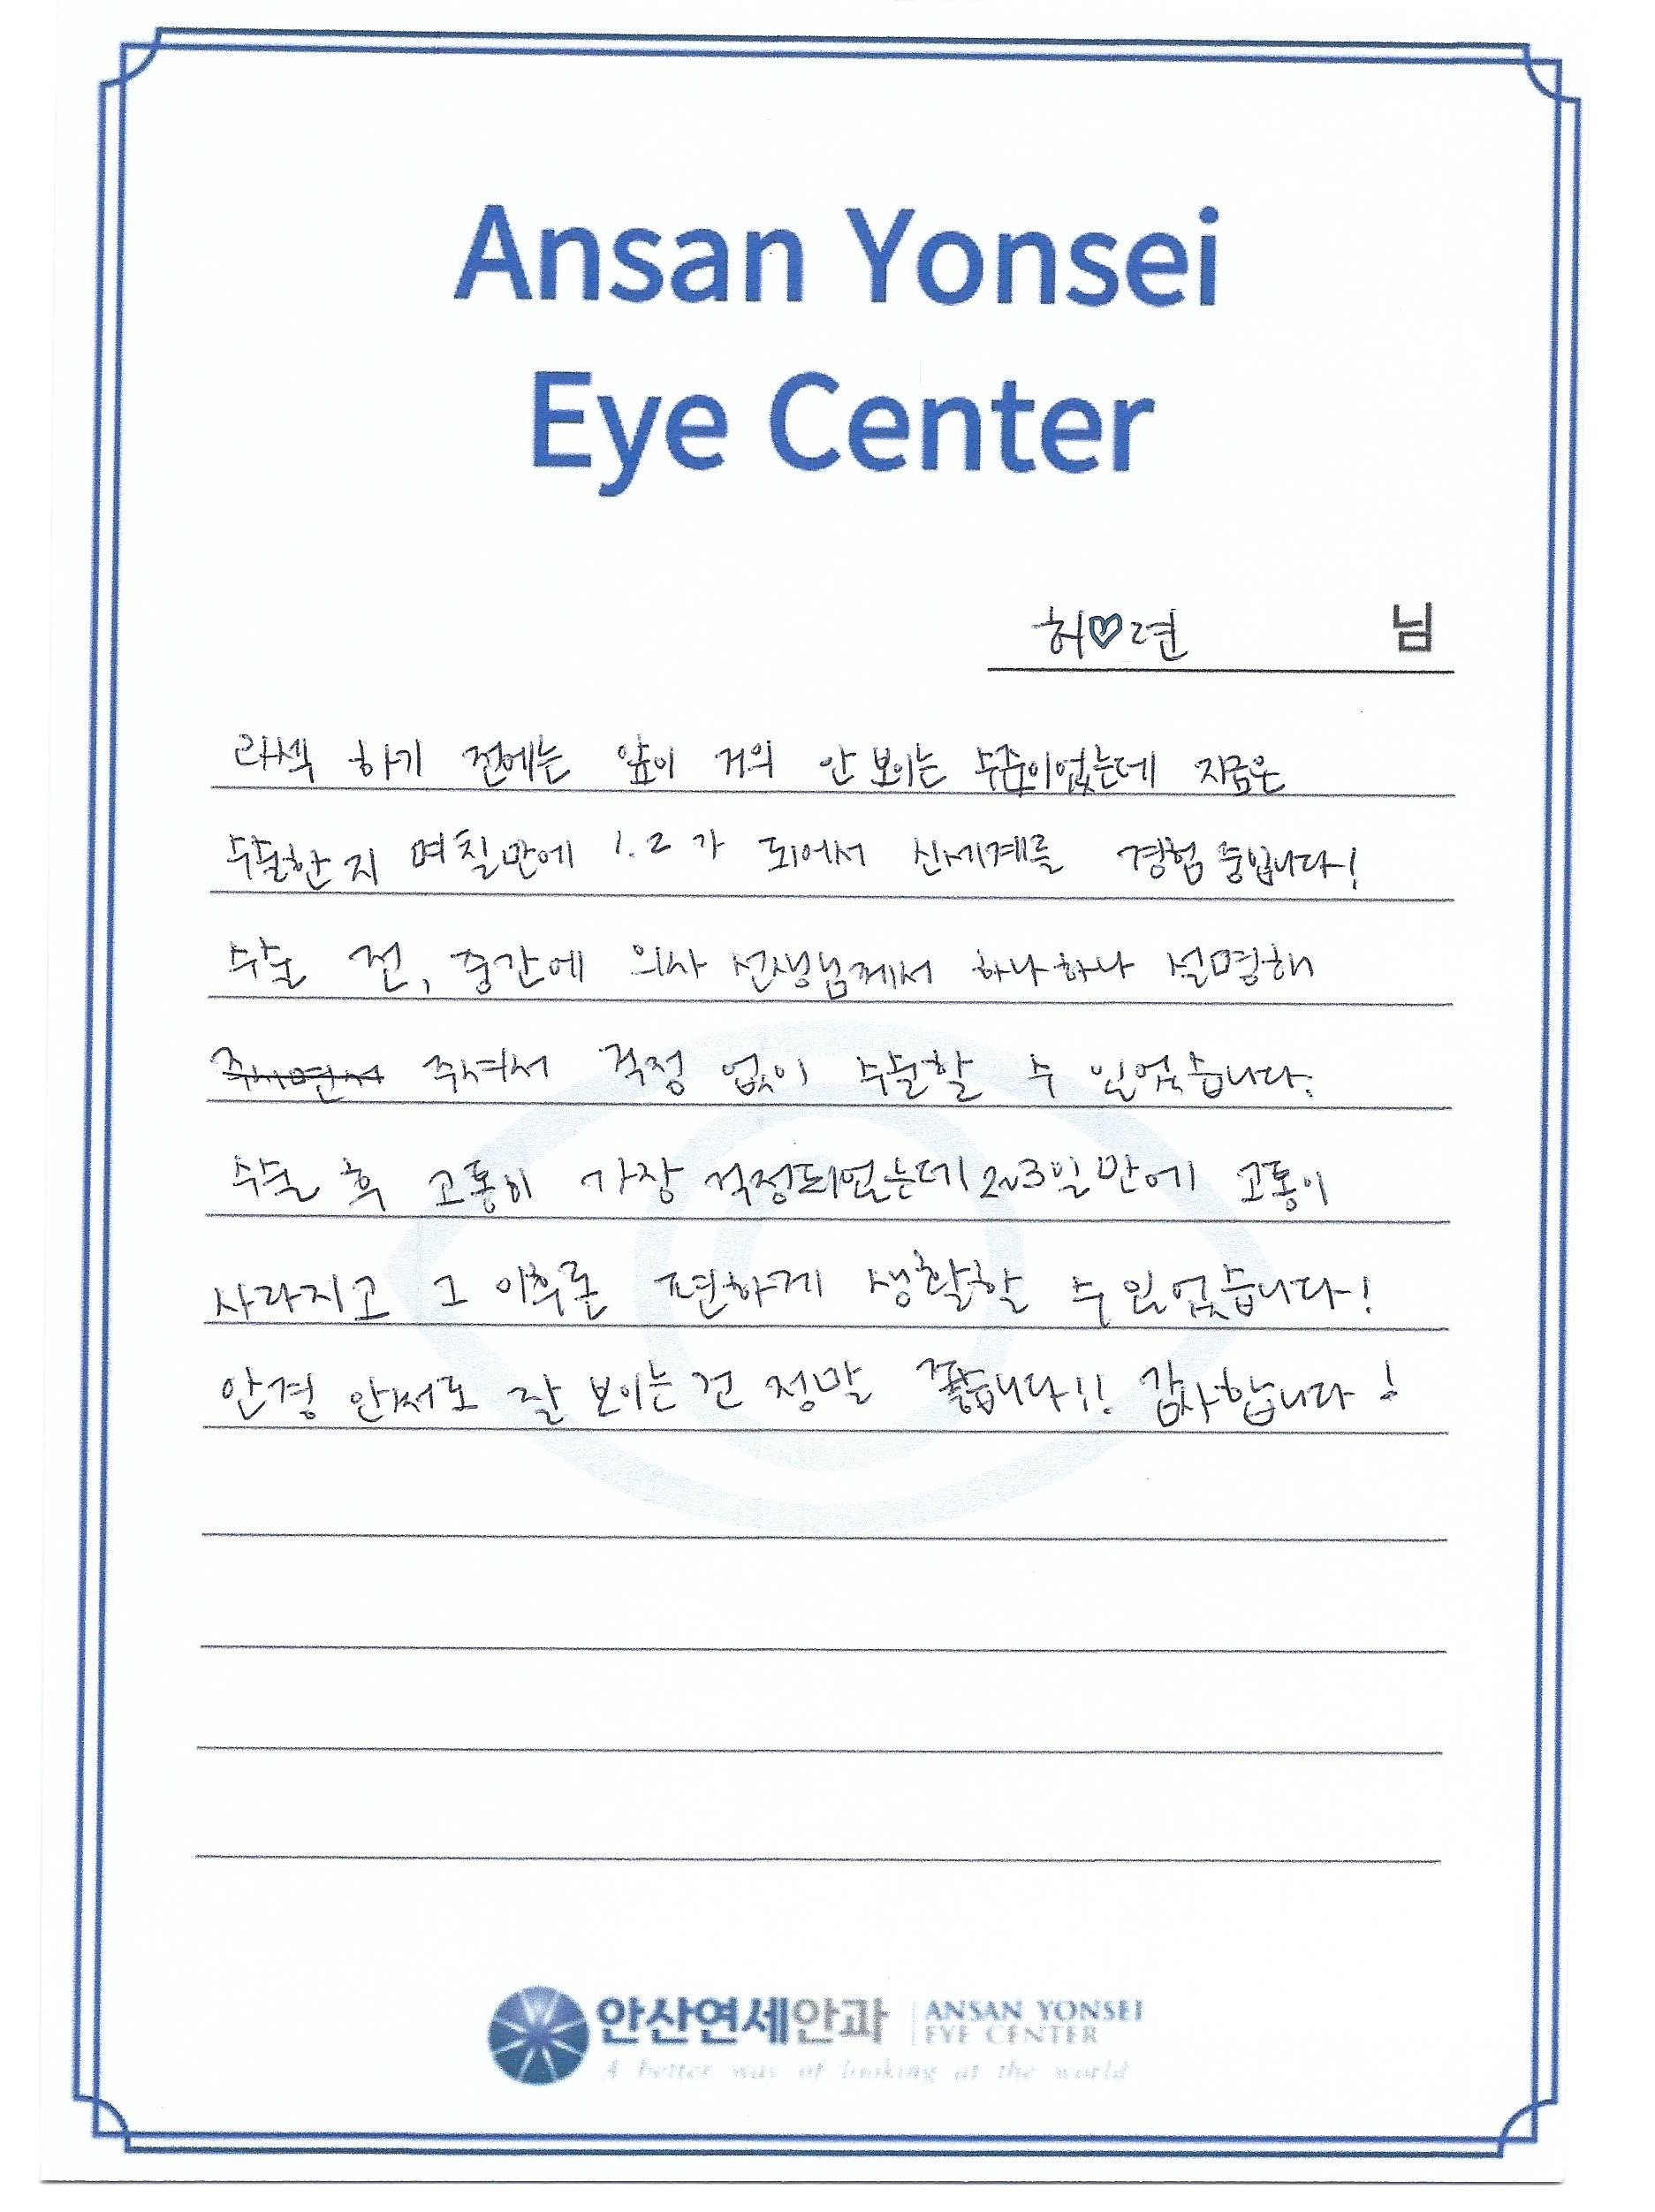 Ansan Yonsei
Eye Center
허♡련 님
라섹 하기 전에는 앞이 거의 안 보이는 수준이었는데 지금은
수술한 지 며칠만에 1.2가 되어서 신세계를 경험 중입니다!
수술 전, 중간에 의사 선생님께서 하나하나 설명해
주시면서 주셔서 걱정 없이 수술할 수 있었습니다.
수술 후 고통이 가장 걱정되었는데 2~3일만에 고통이
사라지고 그 이후론 편하게 생활할 수 있었습니다!
안경 안써도 잘 보이는 건 정말 좋습니다!! 감사합니다!
안산연세안과 ANSAN YONSEI
EYE CENTER
A better way of looking at the world